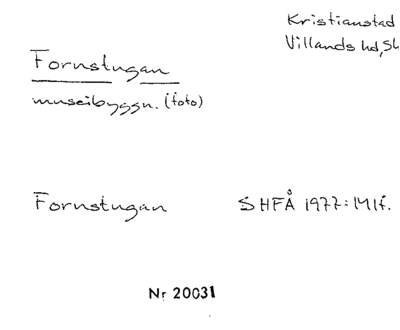 Kristianstad
Villands hd, Sk
Fornstugan
museibyggn. (foto)
Fornstugan SHFÅ 1977:141f.
Nr 20031